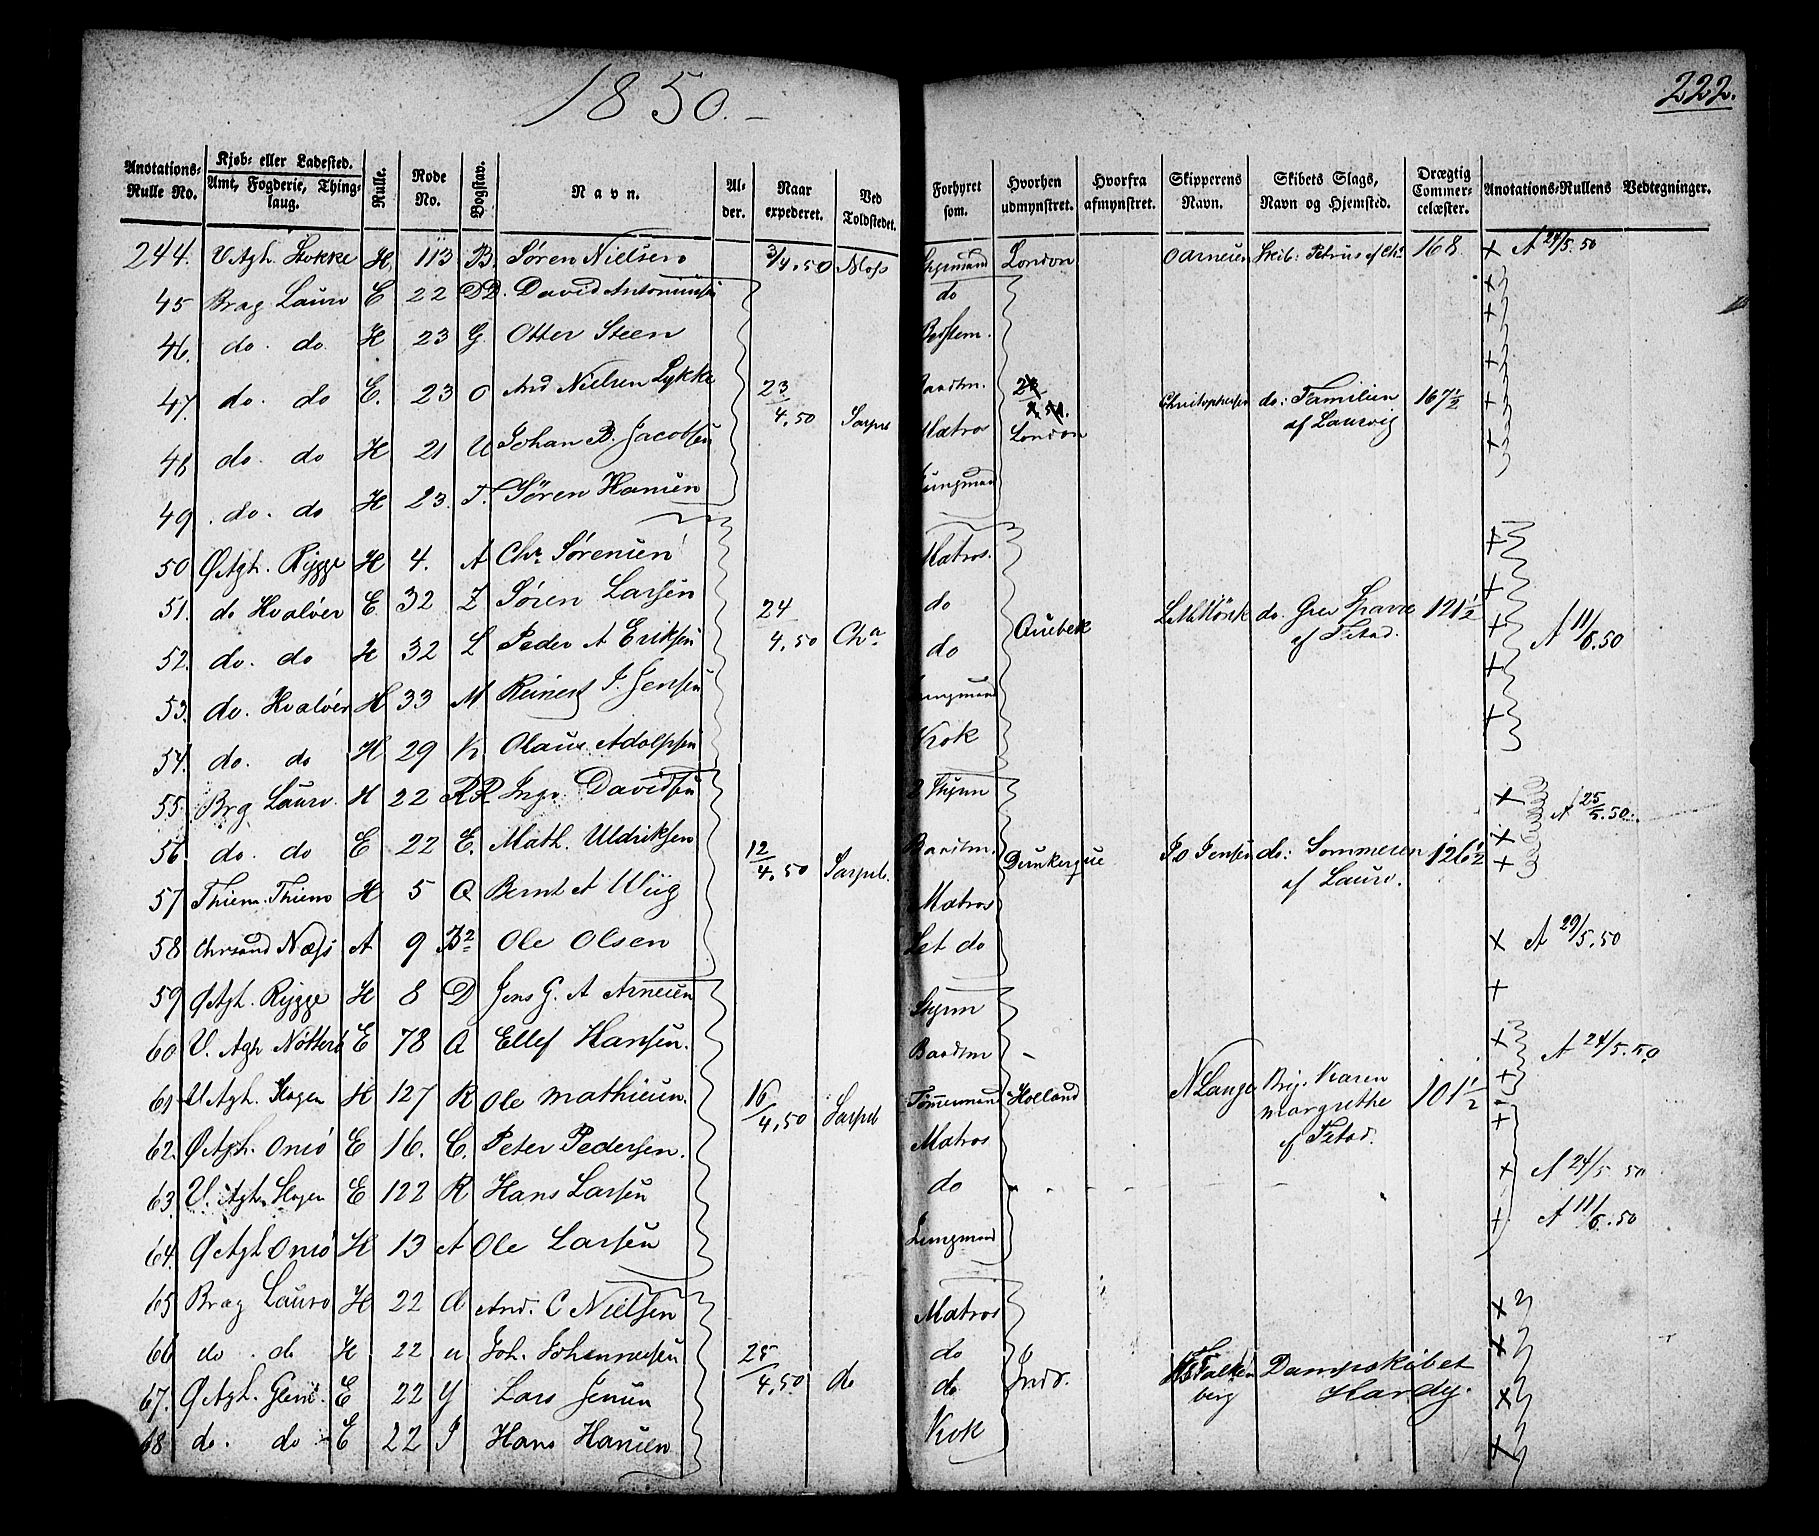 1850.
222.
Anotations-Rulle No. Kjøb- eller Ladested. Amt, Fogderie, Thinglaug. Rulle. Node No. Bogstav. Navn. Alder. Naar expederet. Ved Toldstedet. Forhyret som. Hvorhen udmynstret. Hvorfra afmynstret. Skipperens Navn. Skibets Slags, Navn og Hjemsted. Drægtig Commercelæster. Anotations-Rullens Vedtegninger.
244. V Agh. Stokke H. 113 B. Søren Nielsen 3/4.50 Moss Styrmand London O Arnesen Skib: Petrus af Cha 168 x A 24/5.50
45 Brag Laurv E 22 DD. David Antoniusen do x
46. do. do H 23 G. Otter Steen x
47. do. do E. 23 O And Nielsen Lykke 23/4.50 Sarpsb Baadsm. London Christophersen do: Familien af Laurvig 167½ x
48 do. do H 21 U Johan B. Jacobsen Matros x
49 do. do H 23. T. Søren Hansen Jungmand
50 Ø Agh. Rygge H 4. A Chr. Sørensen Matros. x
51. do Hvaløer E. 32 Z Søren Larsen 24/4.50 Cha do Quebek do. Grev af Fstad. 121½ x A 11/6.50
52. do. do H 32 L Peder A Eriksen do x
53. do. Hvaløer H 33 M Reinert J. Jensen Jungmand x
54. do. do H 29 K Olaus Adolpsen Kok x
55. Brg Laurv. H 22 RR Ingv Davidsen Styrm x A 25/5.50.
56 do. do E 22 E. Math. Uldriksen 12/4.50 Sarpsb. Baadsm. Dunkerque Jensen do: Sommeren af Laurv. 126½ x
57 Thiem. Thiemo H 5 Q Bernt A Wiig Matros x
58 Chrsand Næss A 9 B2 Ole Olsen Let do x A 29/5.50
59 Ø Agh. Rygge H 8 D Jens G. A Arnesen Styrm x
60 V. Agh Nötterö E 78 A Ellef Hansen. Baadsm x A 24/5.50
61 V Agh. Skogen H 127 R Ole Mathiesen. 16/4.50 Sarpsb Tömmermand Holland N Lange Brig. Karen Margrethe af Fstad. 101½ x
62. Ø Agh. Onsö E 16. C. Peter Pedersen. Matros x
63. V. Agh. Skogen E 122 R Hans Larsen do x A 24/5 50
64. Ø Agh Onsö H 13 A Ole Larsen Jungmand x A 11/6.50
65 Brag Laurv H 22 And. C Nielsen Matros x
66 do. do H 22 u Joh. Johannesen 25/4.50 do do x
67. Ø Agh. Glem. E 22 Y Lars Jensen do Indr. Falkenberg Dampskibet Hardy. x
68 do. do E 22 Hans Hansen Kok x